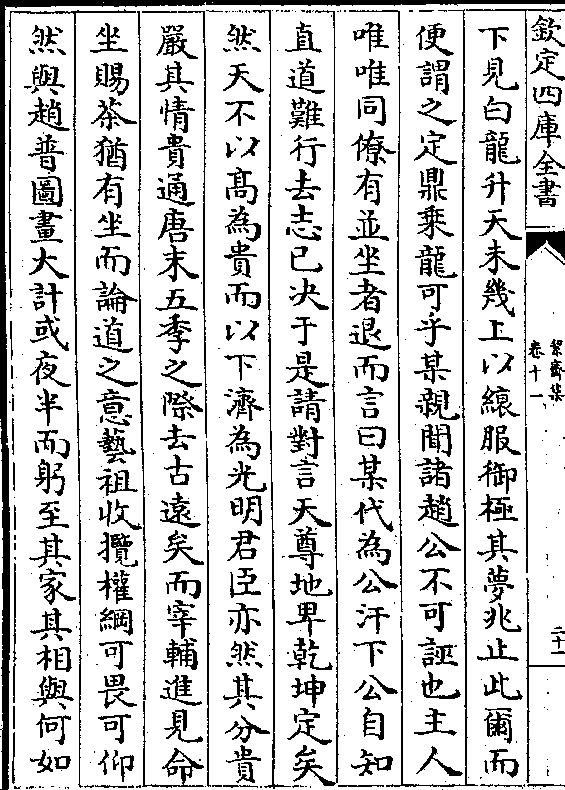 欽定四庫全書
絜齋集
卷十一
二十一
下見白龍升天未幾上以縗服御極其夢兆止此爾而
便謂之定鼎乗龍可乎某親聞諸趙公不可誣也主人
唯唯同僚有並坐者退而言曰某代為公汗下公自知
直道難行去志已决于是請對言天尊地卑乾坤定矣
然天不以髙為貴而以下濟為光明君臣亦然其分貴
嚴其情貴通唐末五季之際去古遠矣而宰輔進見命
坐賜茶猶有坐而論道之意藝祖收攬權綱可畏可仰
然與趙普圖畫大計或夜半而躬至其家其相與何如